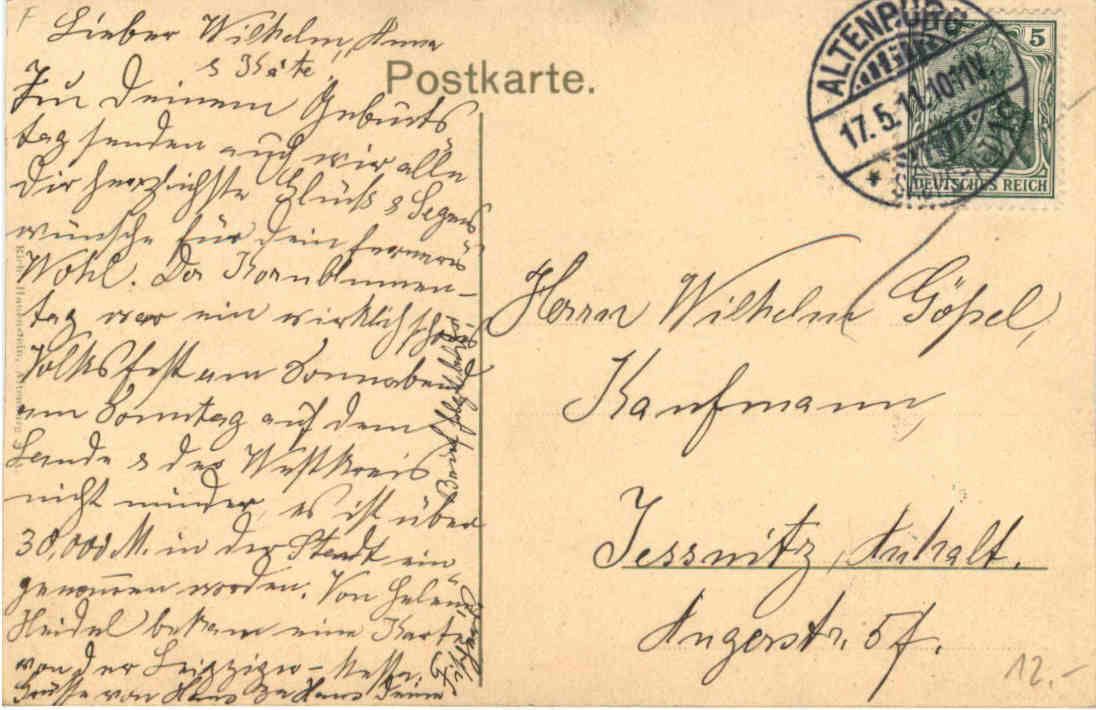 Lieber Wilhelm, Anna
& Käte!
Zu Deinem Geburts
tag senden auch wir alle
Dir herzlichste Glück & Segens
wünsche für Dein ferneres
Wohl. Der Kornblumen-
tag war ein wirklich schönes
Volksfest am Sonnabend
am Sonntag auf dem
Lande & der Westkreis
nicht minder, es ist über
30,000 M. in der Stadt ein
genommen worden. Von Helene
Heidel bekam eine Karte
von der Leipziger-Messe.
Grüsse von Haus zu Haus Deine
Postkarte.
ALTENBURG
17.5.11.10-11V.
5
DEUTSCHES REICH
Herrn Wilhelm Göpel,
Kaufmann,
Jessnitz, Anhalt.
Angerstr. 57.
12.-